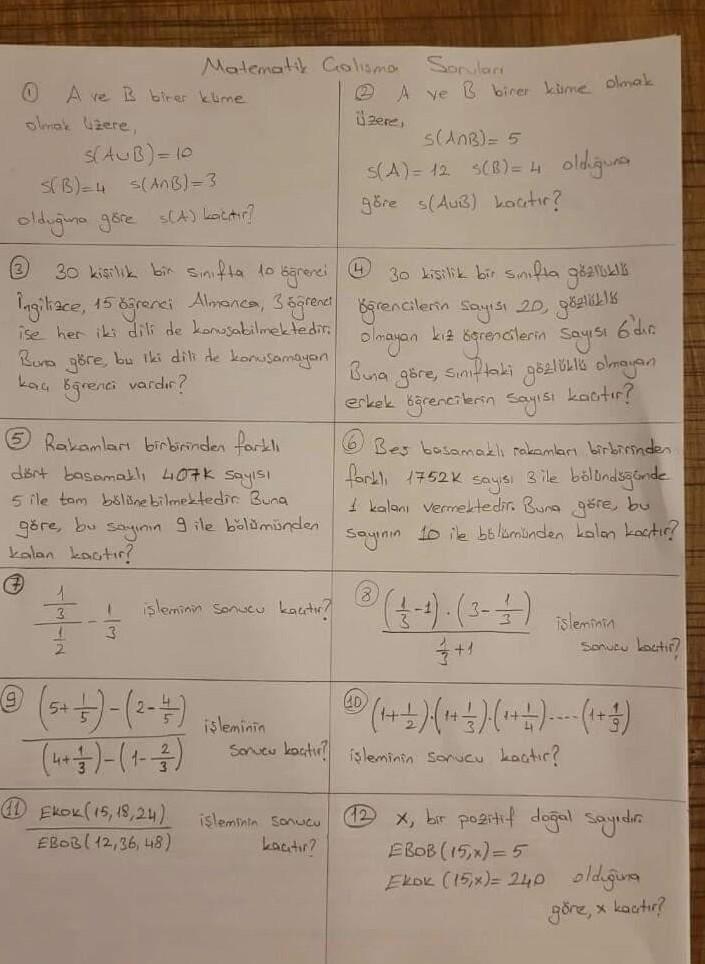 Matematik Çalışma Soruları
① A ve B birer küme
olmak üzere,
s(A∪B)=10
s(B)=4 s(A∩B)=3
olduğuna göre s(A) kaçtır?
② A ve B birer küme olmak
üzere,
s(A∩B)=5
s(A)=12 s(B)=4 olduğuna
göre s(A∪B) kaçtır?
③ 30 kişilik bir sınıfta 10 öğrenci
İngilizce, 15 öğrenci Almanca, 3 öğrenci
ise her iki dili de konuşabilmektedir.
Buna göre, bu iki dili de konuşamayan
kaç öğrenci vardır?
④ 30 kişilik bir sınıfta gözlüklü
öğrencilerin sayısı 20, gözlüklü
olmayan kız öğrencilerin sayısı 6'dır.
Buna göre, sınıftaki gözlüklü olmayan
erkek öğrencilerin sayısı kaçtır?
⑤ Rakamları birbirinden farklı
dört basamaklı 407K sayısı
5 ile tam bölünebilmektedir. Buna
göre, bu sayının 9 ile bölümünden
kalan kaçtır?
⑥ Beş basamaklı rakamları birbirinden
farklı 1752K sayısı 3 ile bölündüğünde
1 kalanı vermektedir. Buna göre, bu
sayının 10 ile bölümünden kalan kaçtır?
⑦ (1/3)/(1/2) - 1/3 işleminin sonucu kaçtır?
⑧ (1/3-1)·(3-1/3) işleminin
1/3+1 sonucu kaçtır?
⑨ (5+1/5)-(2-4/5) işleminin
(4+1/3)-(1-2/3) sonucu kaçtır?
⑩ (1+1/2)·(1+1/3)·(1+1/4)·----(1+1/9)
işleminin sonucu kaçtır?
⑪ EKOK(15,18,24) işleminin sonucu
EBOB(12,36,48) kaçtır?
⑫ x, bir pozitif doğal sayıdır.
EBOB(15,x)=5
EKOK(15,x)=240 olduğuna
göre, x kaçtır?